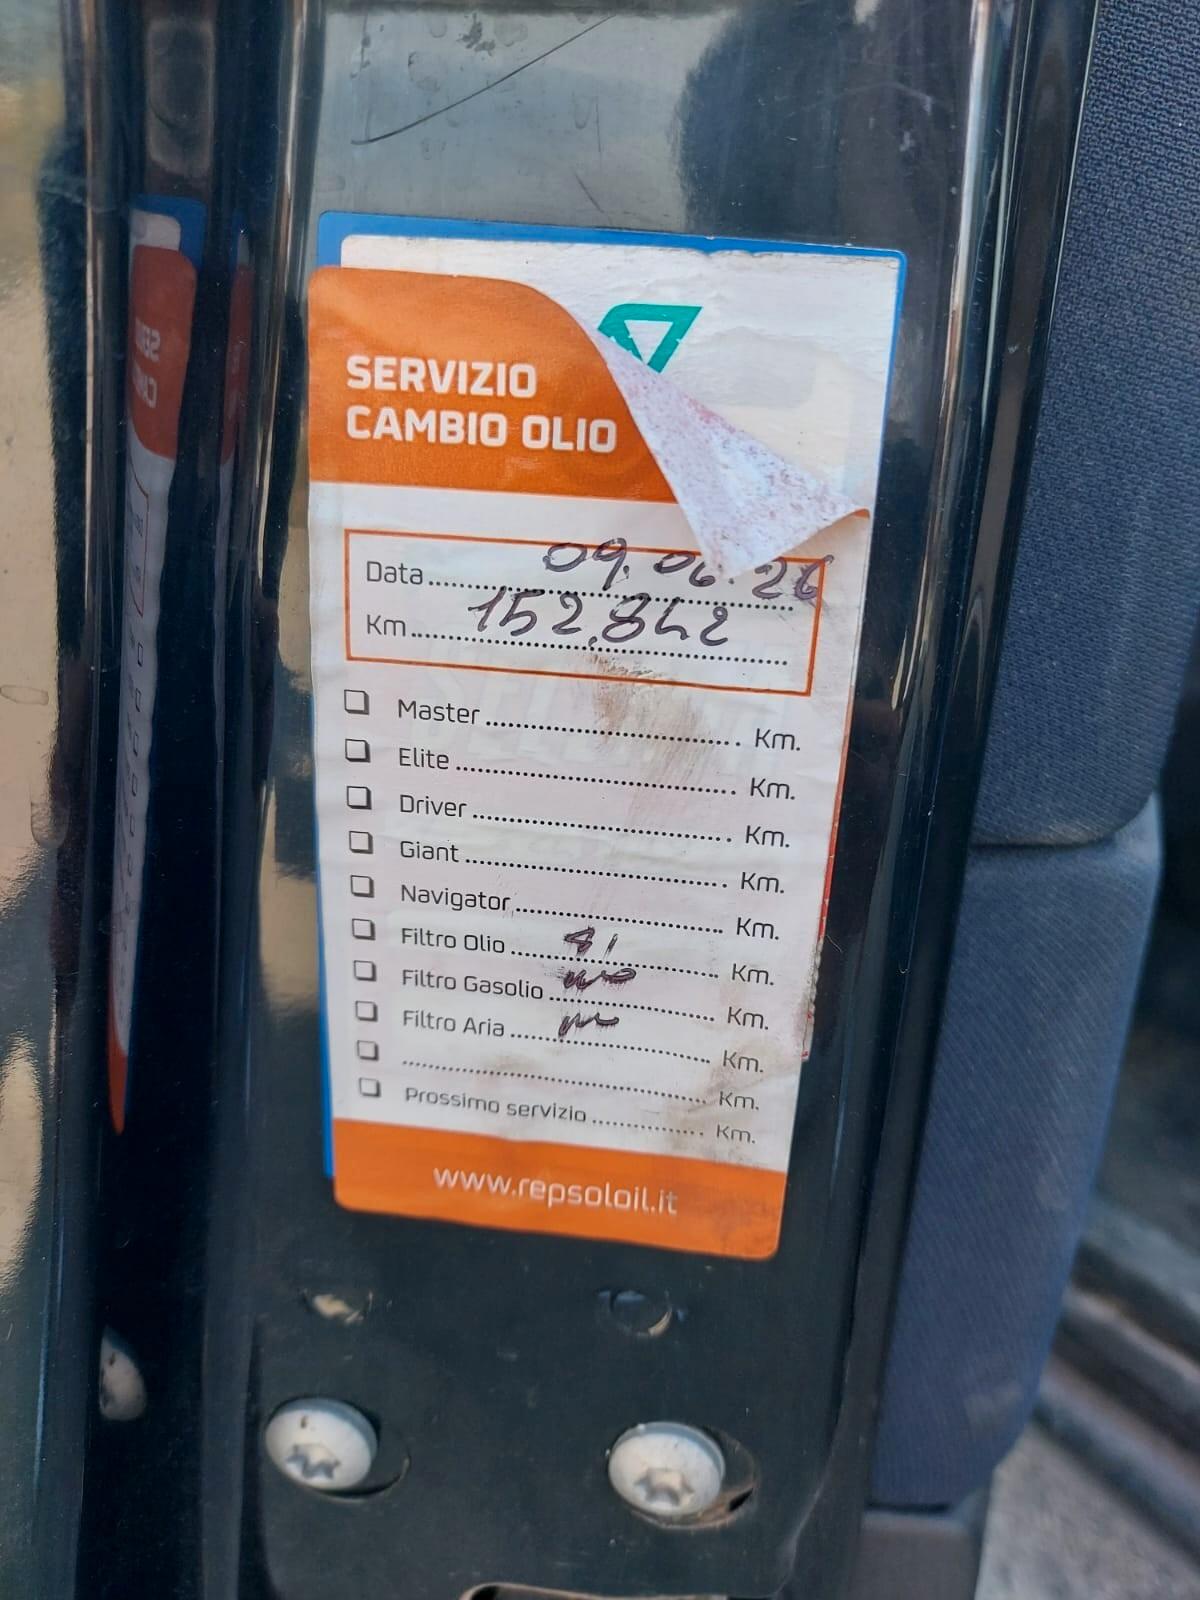 SERVIZIO
CAMBIO OLIO
Data 09.06.26
Km 152.842
Master Km.
Elite Km.
Driver Km.
Giant Km.
Navigator Km.
Filtro Olio si Km.
Filtro Gasolio no Km.
Filtro Aria no Km.
Km.
Prossimo servizio Km.
www.repsoloil.it